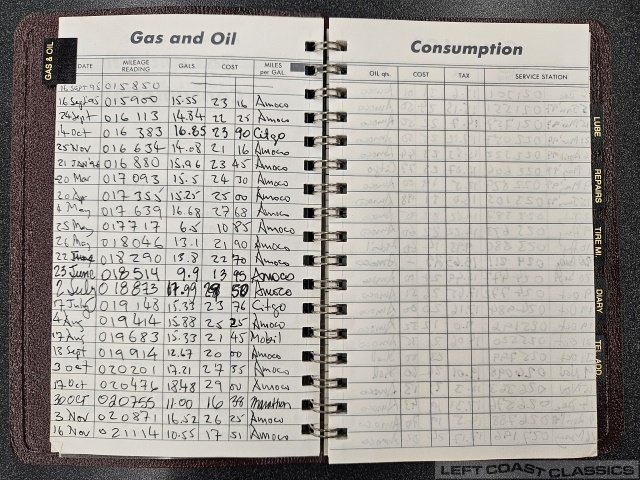 Gas and Oil
GAS & OIL
DATE MILEAGE READING GALS. COST MILES per GAL.
16 Sept 95 015850
16 Sept 95 015900 15.55 23 16 Amoco
24 Sept 016 113 14.84 22 25 Amoco
14 Oct 016 383 16.85 23 90 Citgo
25 Nov 016 634 14.08 21 16 Amoco
21 JAN 96 016 880 15.96 23 45 Amoco
20 Mar 017 093 15.5 24 30 Amoco
20 Apr 017 355 15.25 25 00 Amoco
4 May 017 639 16.68 27 68 Amoco
25 May 017717 6.5 10 85 Amoco
26 May 018046 13.1 21 90 Amoco
22 018290 13.8 22 70 Amoco
23 June 018514 9.9 13 95 Amoco
2 July 018873 17.99 28 50 Amoco
17 July 019148 15.33 23 76 Citgo
4 Aug 019414 15.88 25 25 Amoco
17 Aug 019683 15.33 21 45 Mobil
13 Sept 019914 12.67 20 00 Amoco
3 Oct 020201 17.21 27 35 Amoco
17 Oct 020476 18.48 29 00 Amoco
30 OCT 020755 11.00 16 38 Marathon
3 Nov 020871 16.52 26 25 Amoco
16 Nov 021114 10.55 17 51 Amoco
Consumption
OIL qts. COST TAX SERVICE STATION
LUBE
REPAIRS
TIRE MI.
DIARY
TEL. ADD.
LEFT COAST CLASSICS